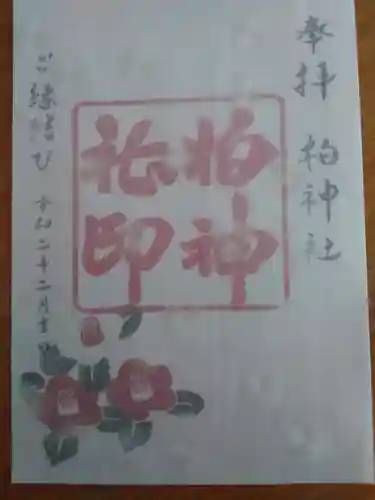 奉拝 柏神社
柏神
社印
ご縁結び
令和二年二月吉日